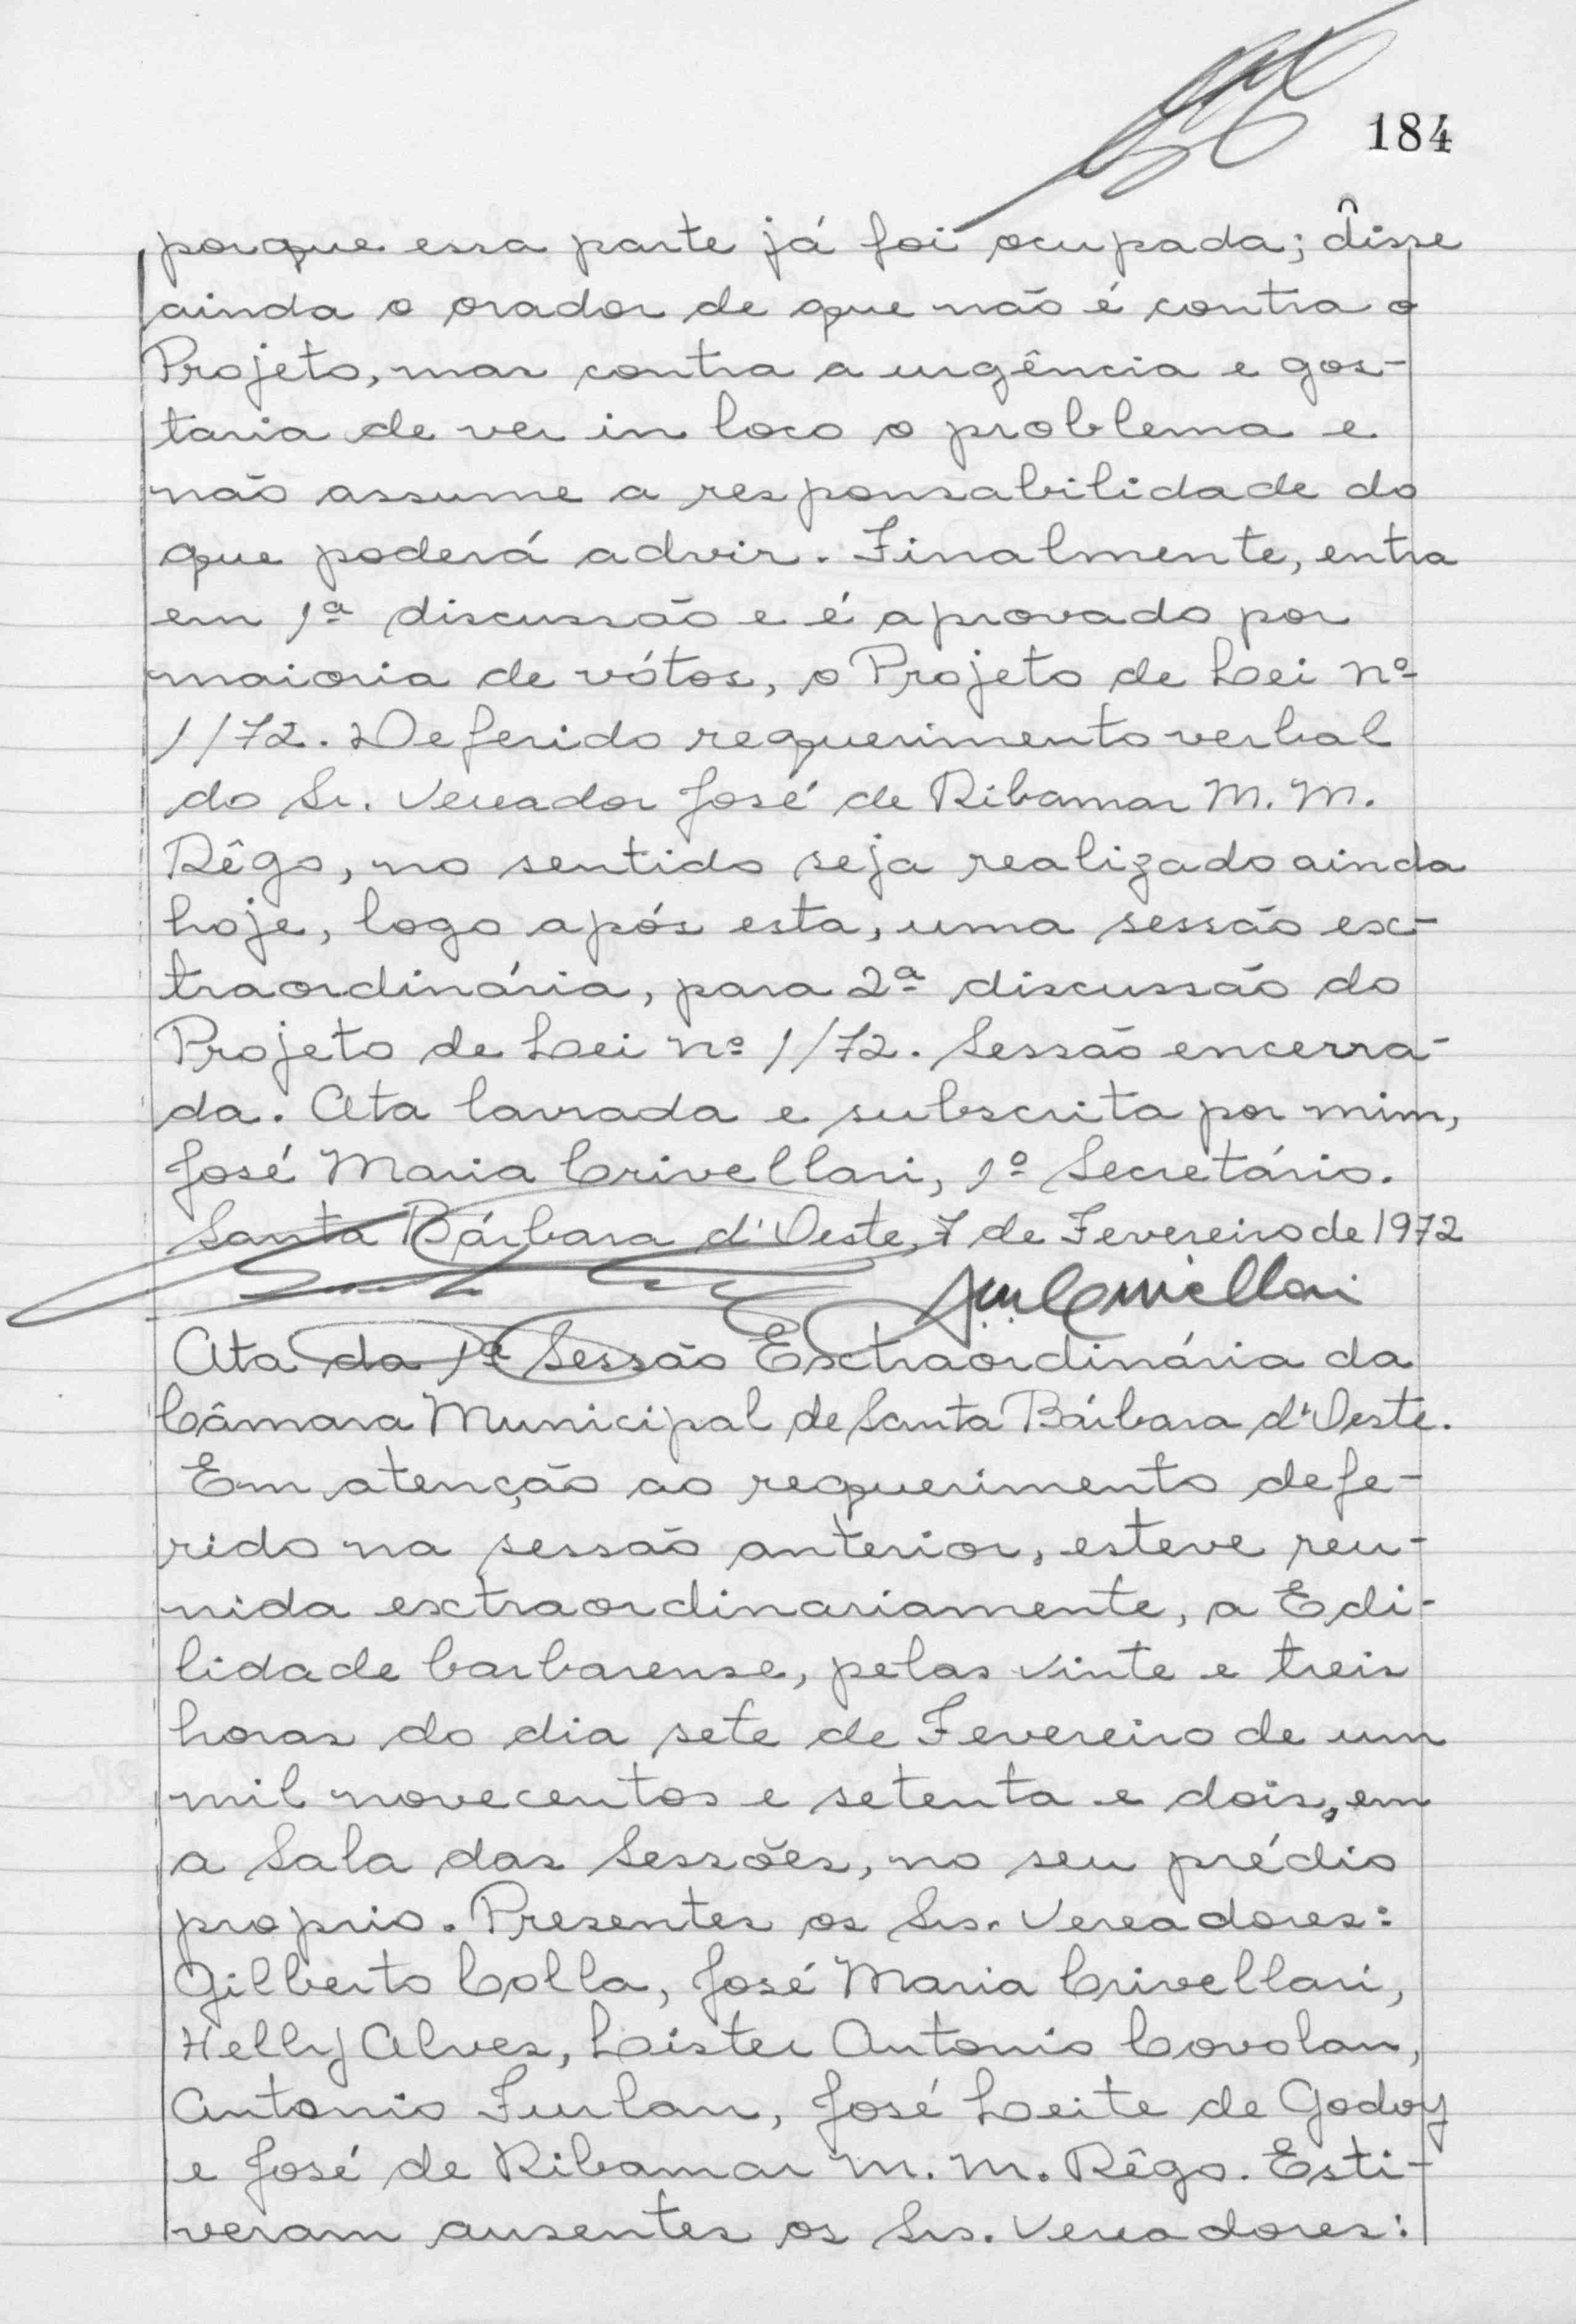 184
porque essa parte já foi ocupada; disse
ainda o orador de que não é contra o
Projeto, mas contra a urgência e gos-
taria de ver in loco o problema e
não assume a responsabilidade do
que poderá advir. Finalmente, entra
em 1ª discussão e é aprovado por
maioria de vótos, o Projeto de Lei nº
1/72. Deferido requerimento verbal
do Sr. Vereador José de Ribamar M. M.
Rêgo, no sentido seja realizado ainda
hoje, logo após esta, uma sessão ex-
traordinária, para 2ª discussão do
Projeto de Lei nº 1/72. Sessão encerra-
da. Ata lavrada e subscrita por mim,
José Maria Crivellari, 1º Secretário.
Santa Bárbara d'Oeste, 7 de Fevereiro de 1972
J.M. Crivellari
Ata da 1ª Sessão Extraordinária da
Câmara Municipal de Santa Bárbara d'Oeste.
Em atenção ao requerimento defe-
rido na sessão anterior, esteve reu-
nida extraordinariamente, a Edi-
lidade barbarense, pelas vinte e treis
horas do dia sete de Fevereiro de um
mil novecentos e setenta e dois, em
a Sala das Sessões, no seu prédio
proprio. Presentes os Srs. Vereadores:
Gilberto Colla, José Maria Crivellari,
Helly Alves, Lister Antonio Covolan,
Antonio Furlan, José Leite de Godoy
e José de Ribamar M. M. Rêgo. Esti-
veram ausentes os Srs. Vereadores: